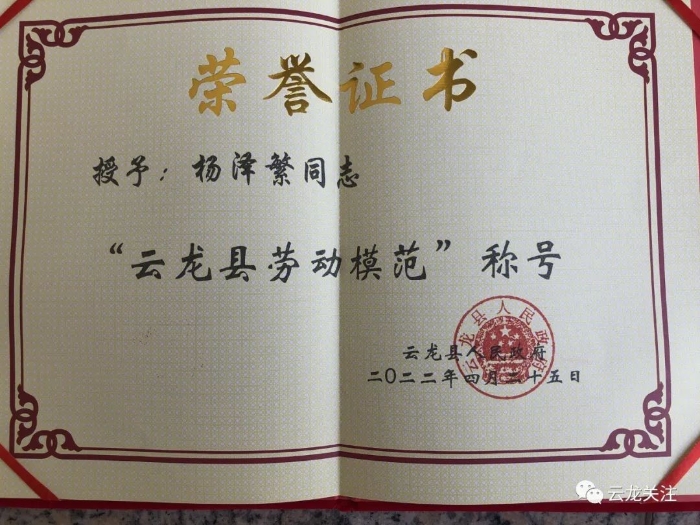 荣誉证书
授予：杨泽繁同志
“云龙县劳动模范”称号
云龙县人民政府
云龙县人民政府
二〇二二年四月二十五日
云龙关注